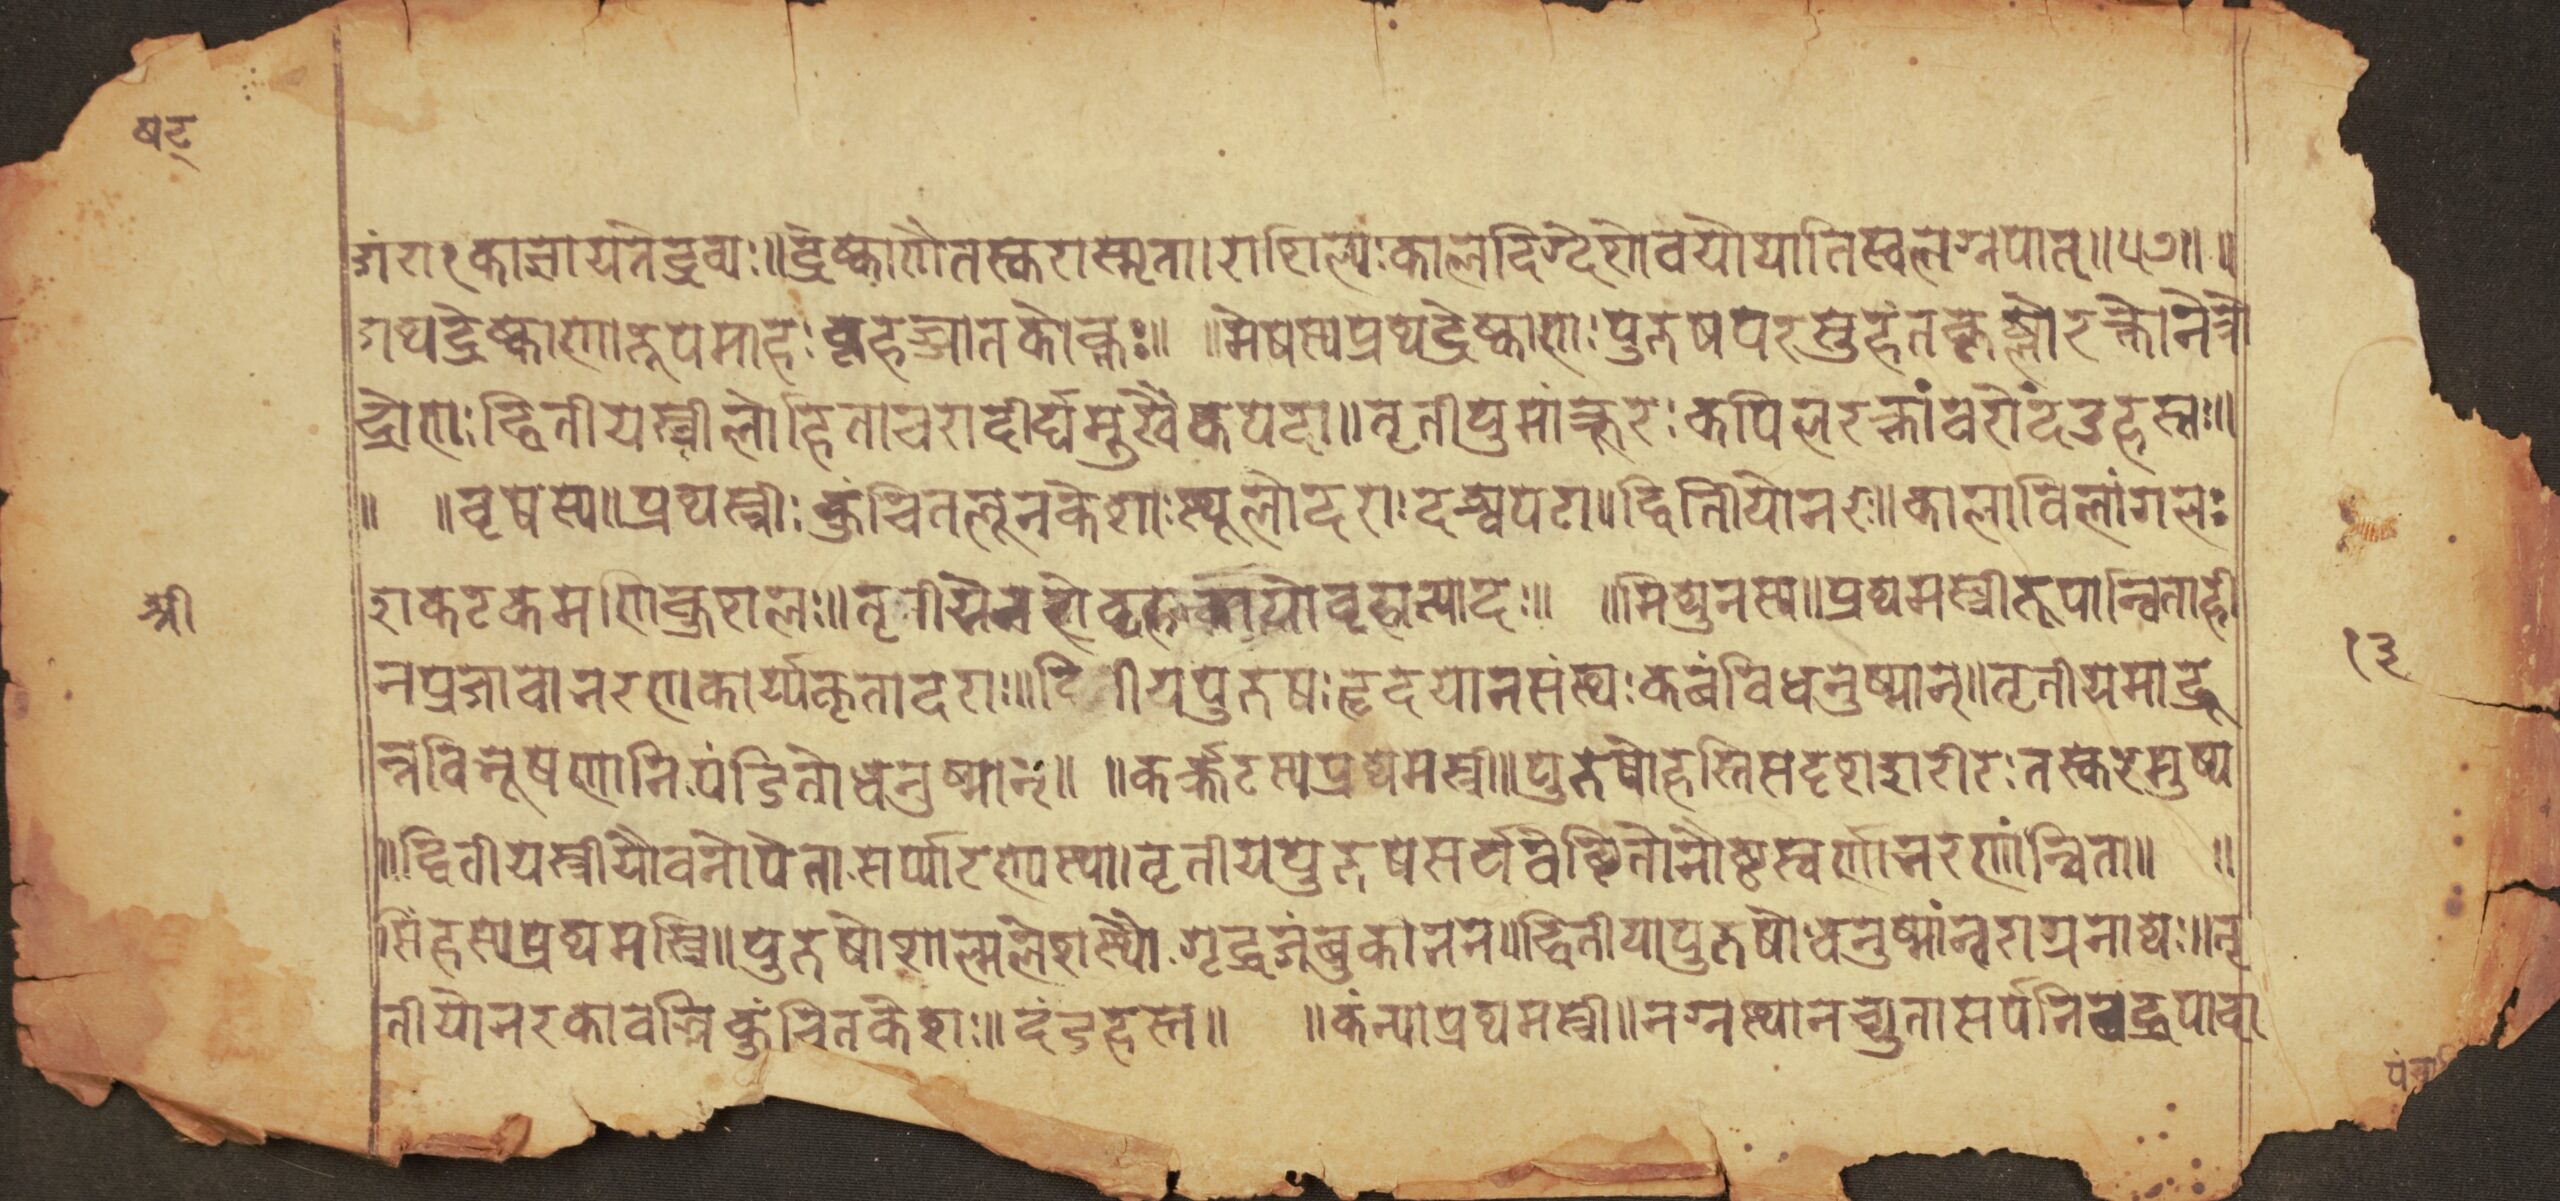 षट्
ङ्गंराःकाज्ञायतेद्रव्यः॥द्रेष्काणैतस्करास्मृता।राशिल्यःकालदिग्देशोवयोयातिस्वलग्नपात्॥५७॥ ॥
गथद्रेष्काणारूपमाहःवृहज्जातकोक्तः॥ ॥मेषस्यप्रथद्रेष्काणःपुरुषपरसुहंतकृष्णौरक्तोनेत्रौ
द्रोणःद्वितीयस्त्रीलोहितांचरादीर्घमुखैकपटा॥तृतीपुमांक्रूरःकपिलरक्तांवरोदंडहस्तः॥
॥ ॥वृषस्य॥प्रथस्त्रीःकुंचितलूनकेशाःस्थूलोदराःदग्धपटा॥द्वितियोनरः॥कालाविलांगलः
शकटकमणिकुशलः॥ ॥मिथुनस्य॥प्रथमस्त्रीरूपान्विताही
नप्रजावानरणकार्य्यकृतादराः॥ पुरुषःहृदयानसंस्थःकवंविधनुष्मान्॥तृतीयमाद्रू
त्नविभूषणानिपंडितोधनुष्मान्॥ ॥कर्क्कटस्यप्रथमस्त्री॥पुरुषोहस्तिसदृशशरीरःतस्करमुष्य
॥द्वितीयस्त्रीयौवनोपेतासर्प्पारण्यस्था।तृतीयपुरुषसर्प्पवेष्टितोनौष्ठस्वर्णानरणांन्विता॥ ॥
सिंहस्यप्रथमस्त्रि॥पुरुषोशाल्मलेशस्थौगृद्धजंबुकानन॥द्वितीयापुरुषोधनुष्मांन्नराग्रनाथः॥तृ
तीयोनरकावर्त्निकुंचितकेशः॥दंडहस्त॥ ॥कंन्याप्रथमस्त्री॥नग्नस्थानच्युतासर्पनिबद्धपादा
श्री
१३